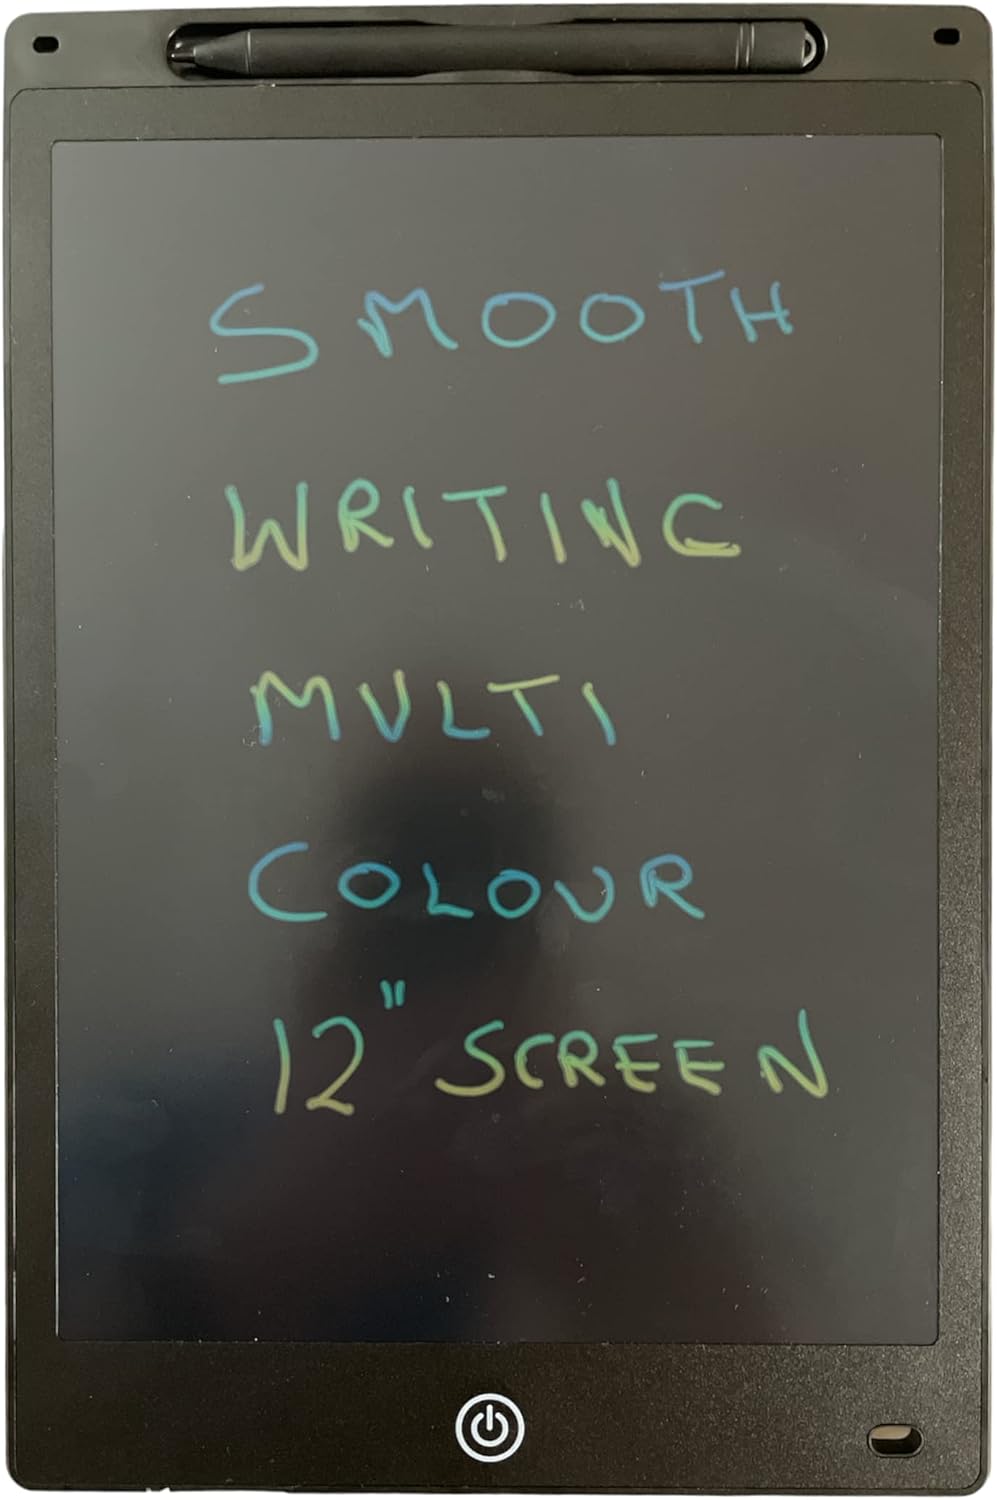 SMOOTH
WRITING
MULTI
COLOUR
12" SCREEN